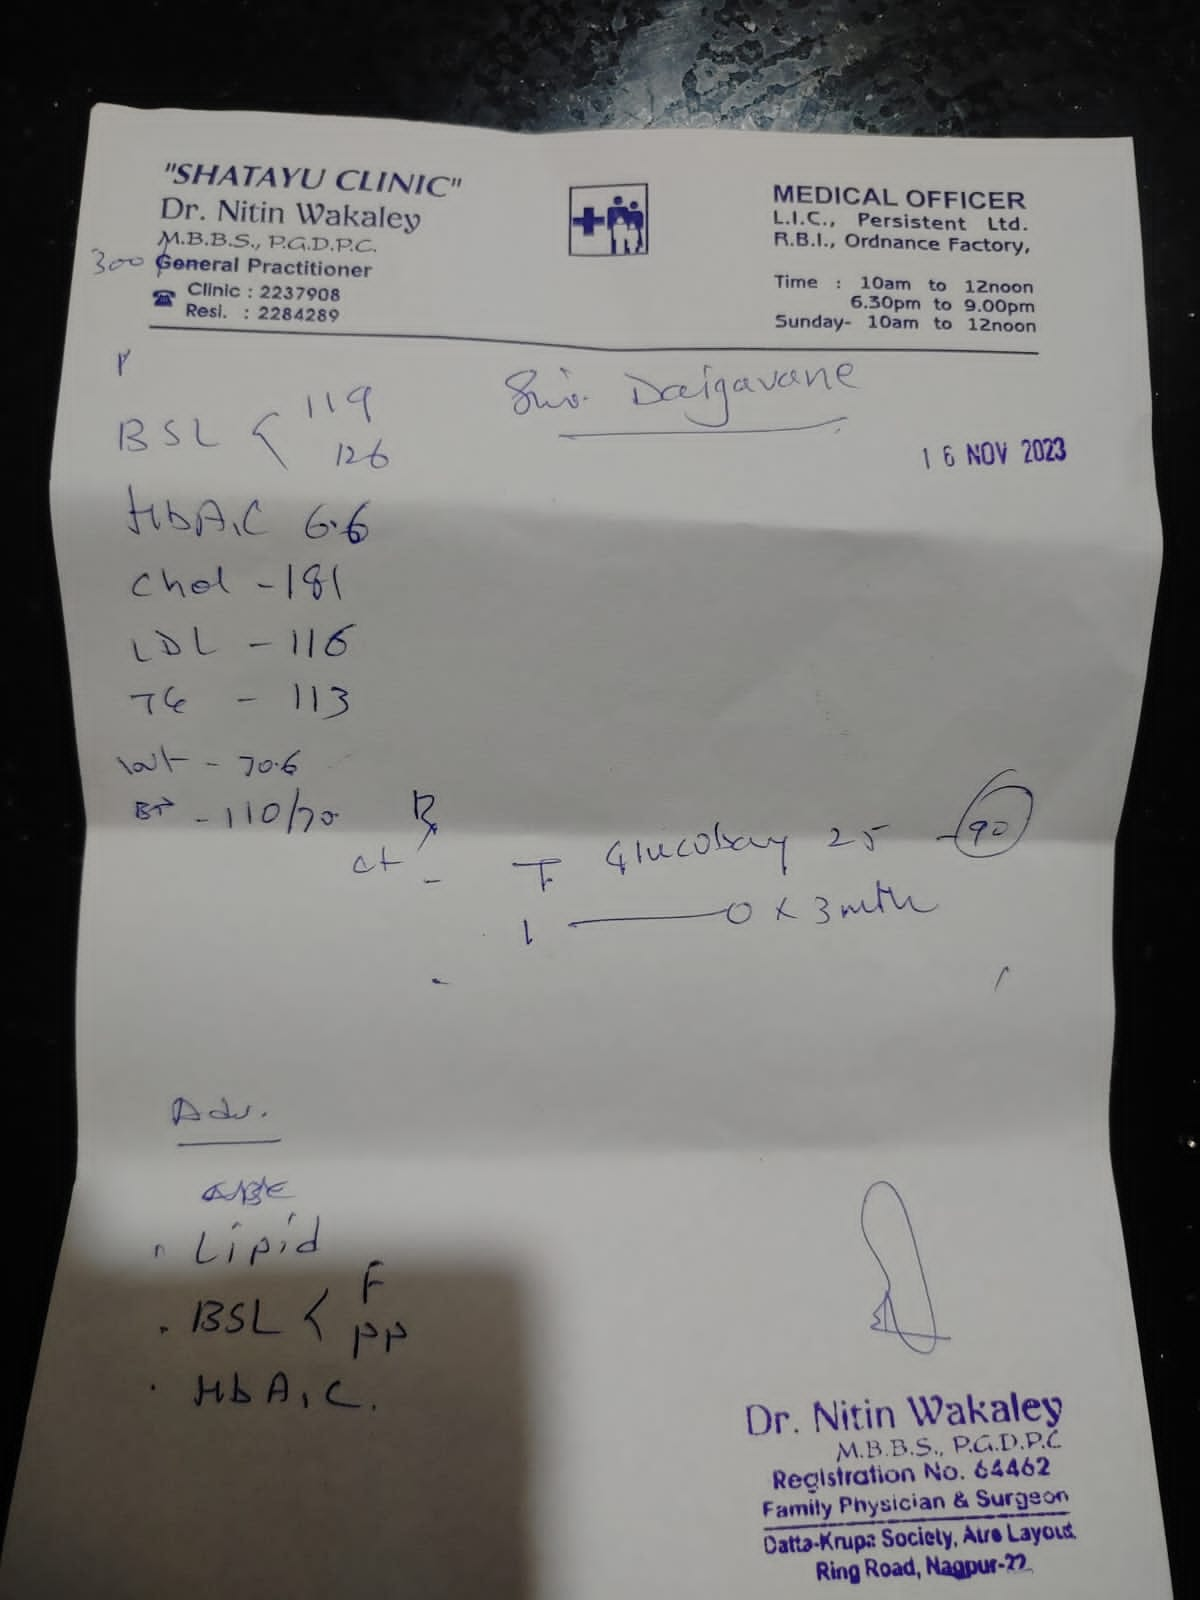 "SHATAYU CLINIC"
Dr. Nitin Wakaley
M.B.B.S., P.G.D.P.C.
300
General Practitioner
Clinic : 2237908
Resi. : 2284289
MEDICAL OFFICER
L.I.C., Persistent Ltd.
R.B.I., Ordnance Factory,
Time : 10am to 12noon
6.30pm to 9.00pm
Sunday- 10am to 12noon
Daigavane
16 NOV 2023
BSL < 119
126
HbA1C 6.6
Chol - 181
LDL - 116
TG - 113
Wt - 70.6
BP - 110/70
Rx
ct - T Glucobay 25 - 90
1 — 0 x 3 mth
Adv.
Lipid
BSL < F
PP
HbA1C.
Dr. Nitin Wakaley
M.B.B.S., P.G.D.P.C
Registration No. 64462
Family Physician & Surgeon
Datta-Krupa Society, Atre Layout,
Ring Road, Nagpur-22